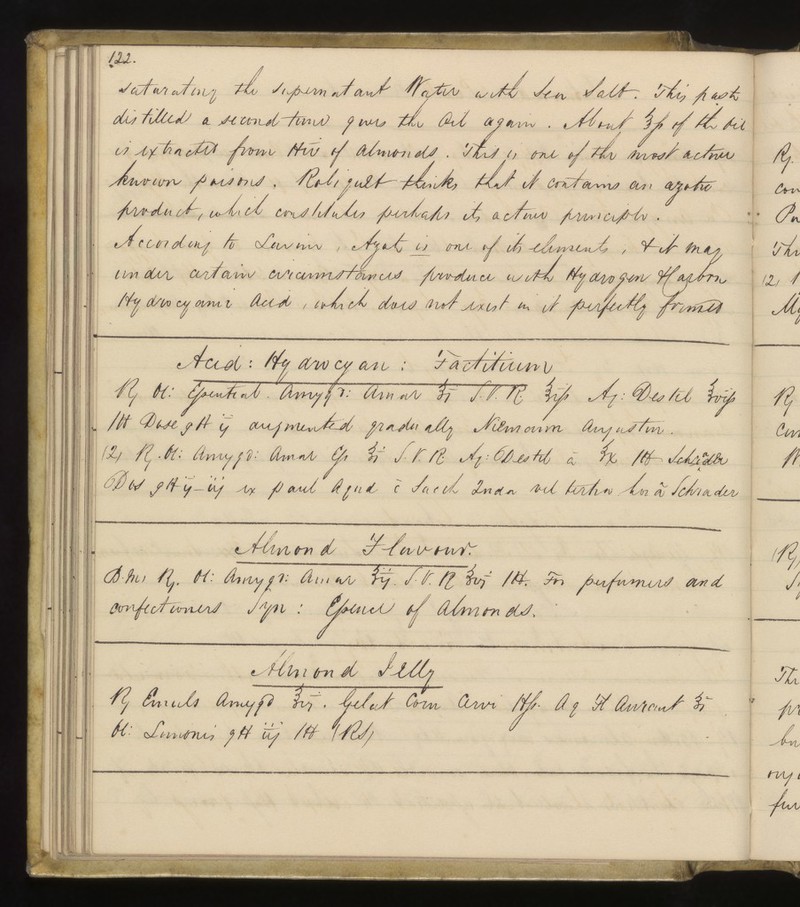 122.
saturating the supernatant Water with Sea Salt. This paste
distilled a second time gives the Oil again. About ʒſs of the Oil
is extracted from of Almonds. This is one of the most active
known poisons. Robiquet thinks that it contains an azotic
product, which constitutes perhaps its active principle.
According to , Azot is one of its elements, & it may
under certain circumstances produce with Hydrogen & Carbon
Hydrocyanic Acid, which does not exist in it perfectly formed
Acid: Hydrocyan: Factitium
℞ Ol: Essential Amygd: Amar ʒi S.V.R. Aq: Destil
M Dose gtt ij augmented gradually Niemann
(2) ℞. Ol: Amygd: Amar Ess ʒi S.V.R. Aq: Destil a ʒx M Schrader
Dos gtt ij–iij ex paul Aqua c Sacch 2nda vel tertia hora Schrader
Almond Flavour.
℞. Ol: Amygd: Amar S.V.R. M. For perfumers and
confectioners Syn: Essence of Almonds.
Almond Jelly
℞ Emuls Amygd . Gelat Corn Cervi Aq Fl Aurant
Ol: Limonis gtt iij M (RS)
℞.
Th
(2)
℞
(℞)
Th